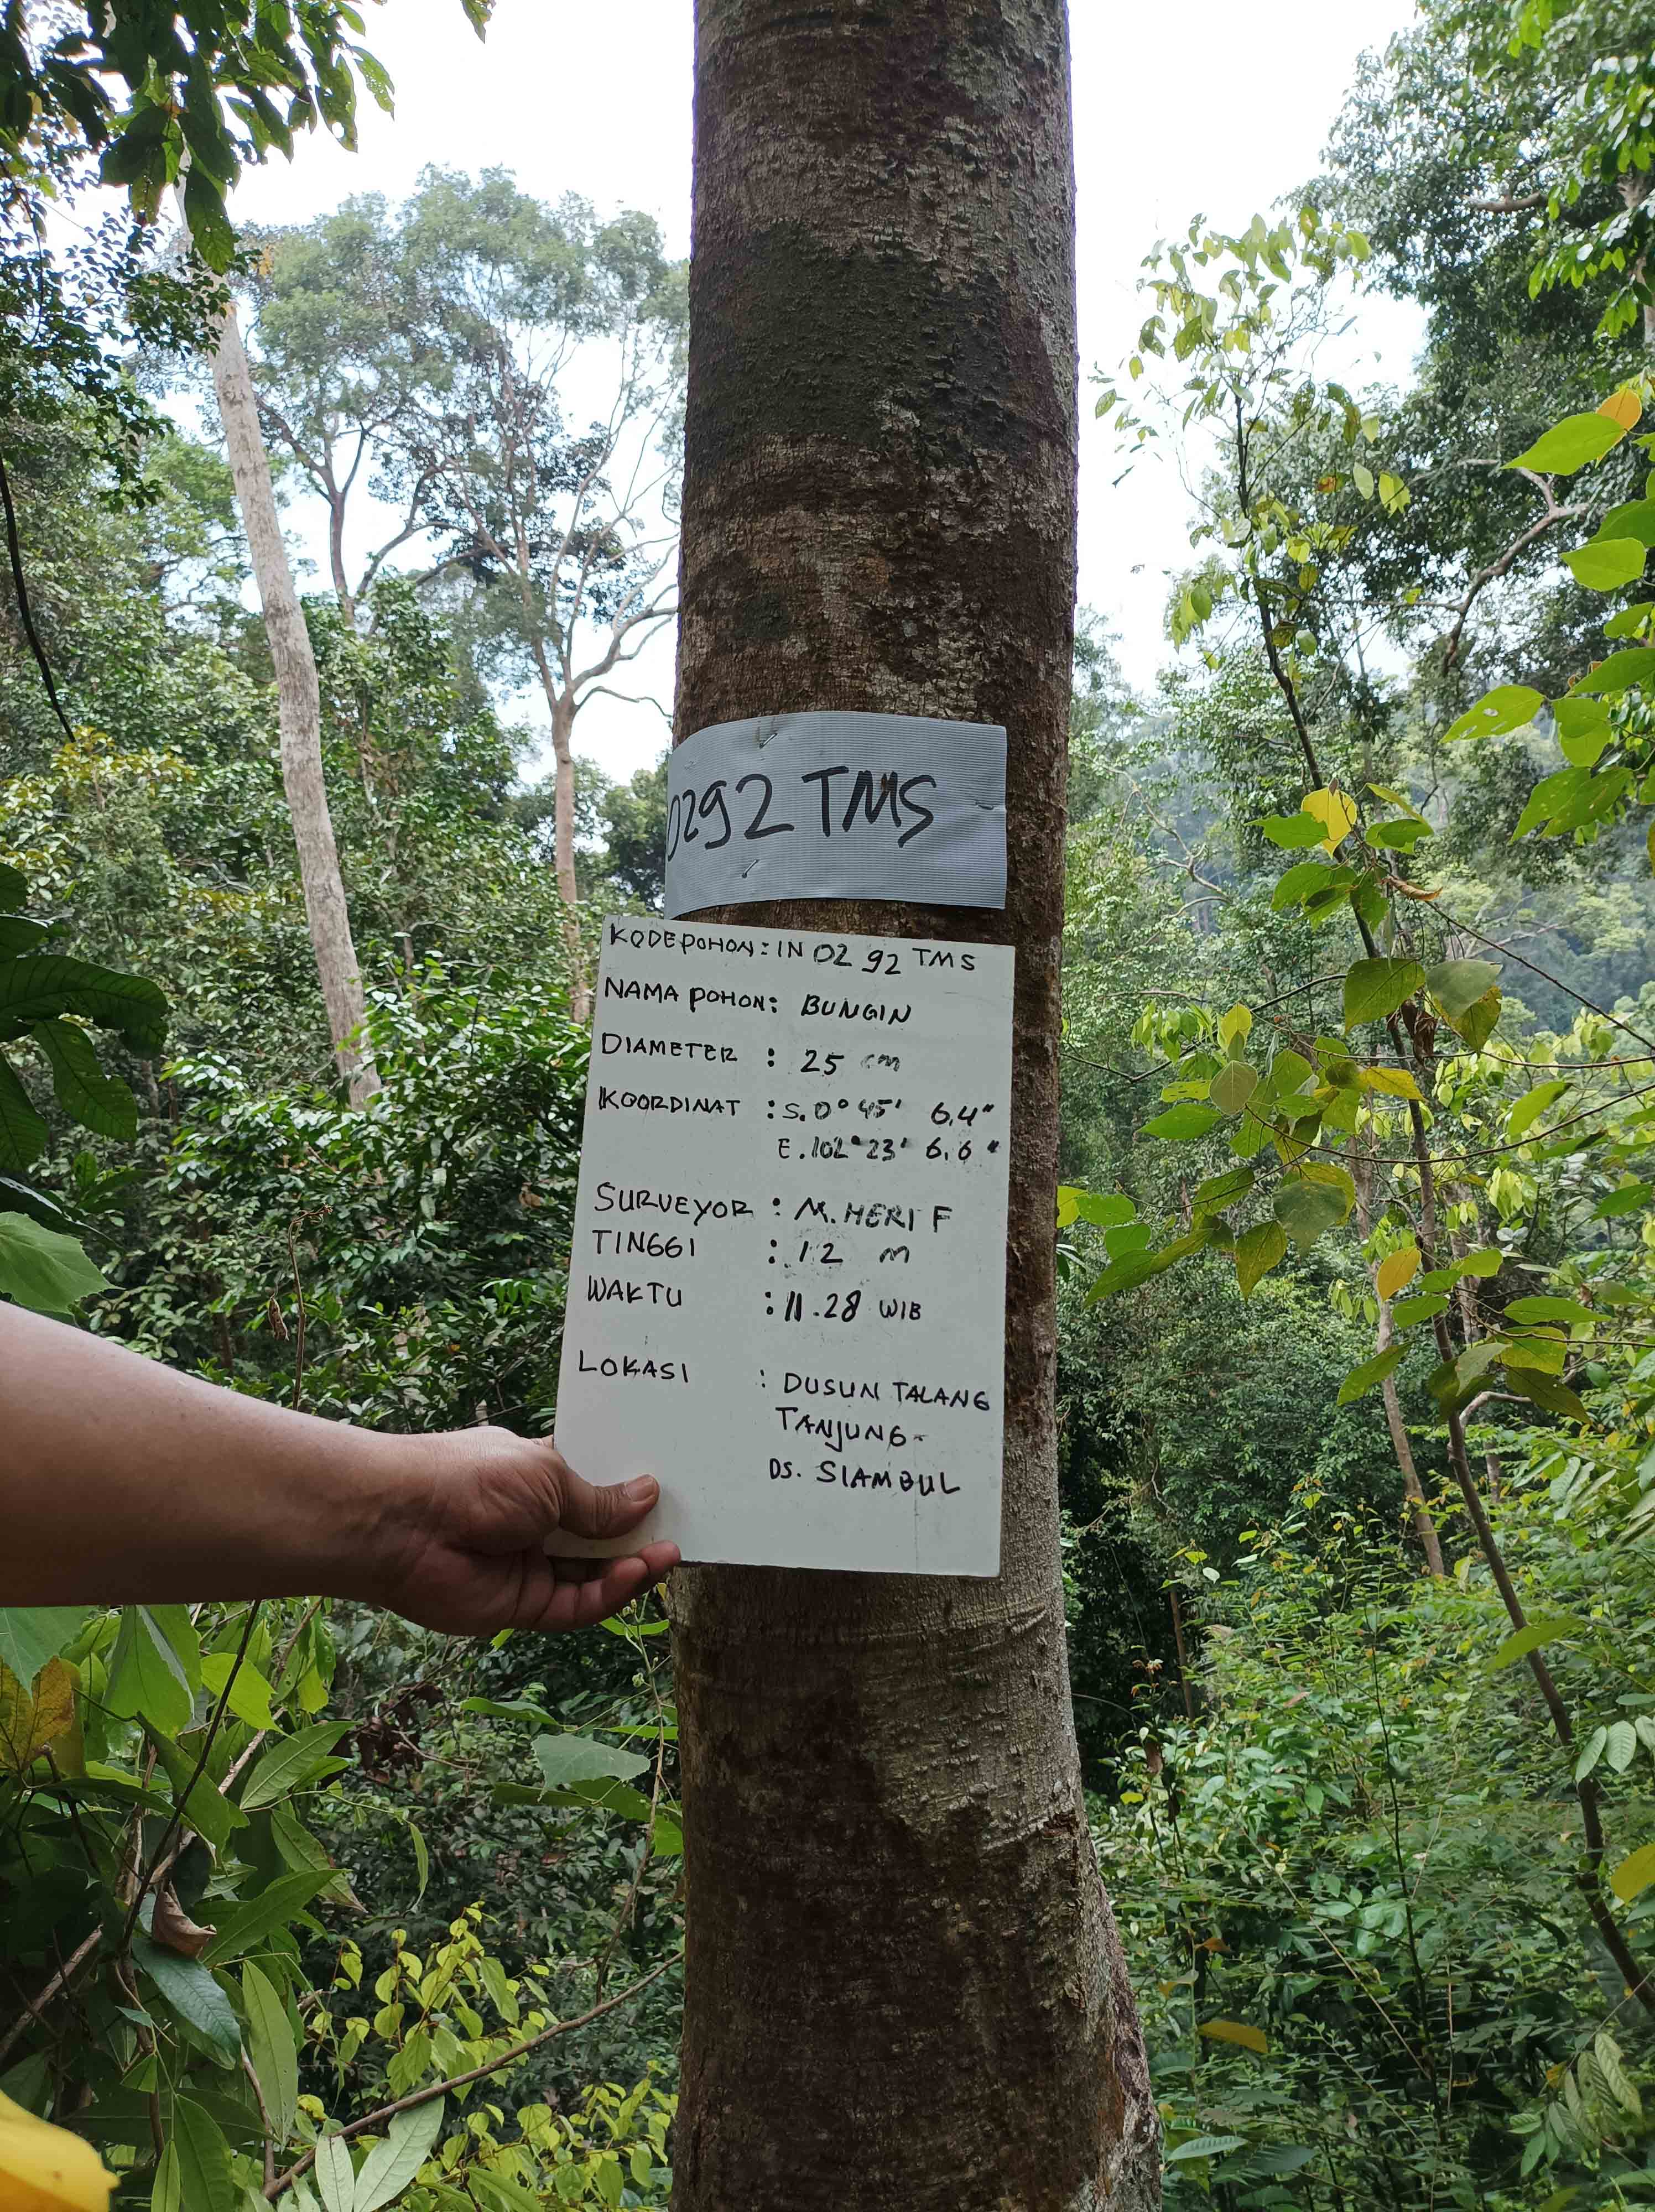 0292 TMS
KODE POHON : IN 02 92 TMS
NAMA POHON : BUNGIN
DIAMETER : 25 cm
KOORDINAT : S. 0° 45' 6,4"
E. 102° 23' 6,6"
SURVEYOR : M. HERI F
TINGGI : 12 M
WAKTU : 11.28 WIB
LOKASI : DUSUN TALANG
TANJUNG-
DS. SIAMBUL